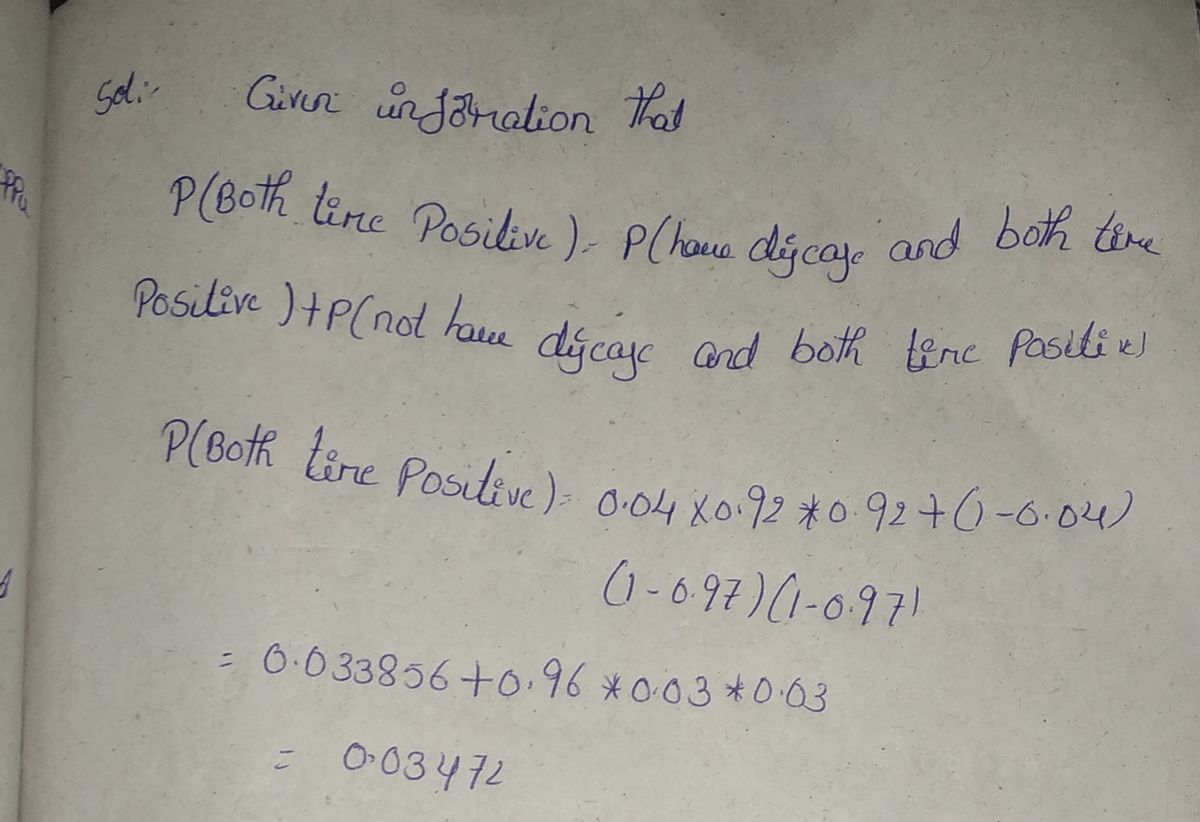 Sol:-  Given information that
P(Both time Positive) = P(have disease and both time
Positive) + P(not have disease and both time Positive)
P(Both time Positive) = 0.04 x 0.92 * 0.92 + (1-0.04)
(1-0.97)(1-0.97)
= 0.033856 + 0.96 * 0.03 * 0.03
= 0.03472